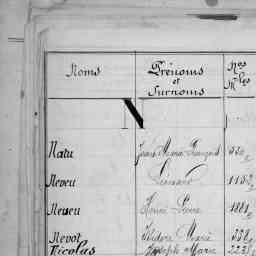 Noms Prénoms et Surnoms Nos Mles
N
Natu Jean Marie François
Neveu Léonard 1152
Neveu Henri Pierre 1881
Nevot Isidore Marie 338
Nicolas Joseph Marie 2231